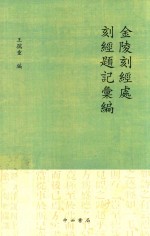 金陵刻經處
刻經題記彙編
王孺童 編
中西書局